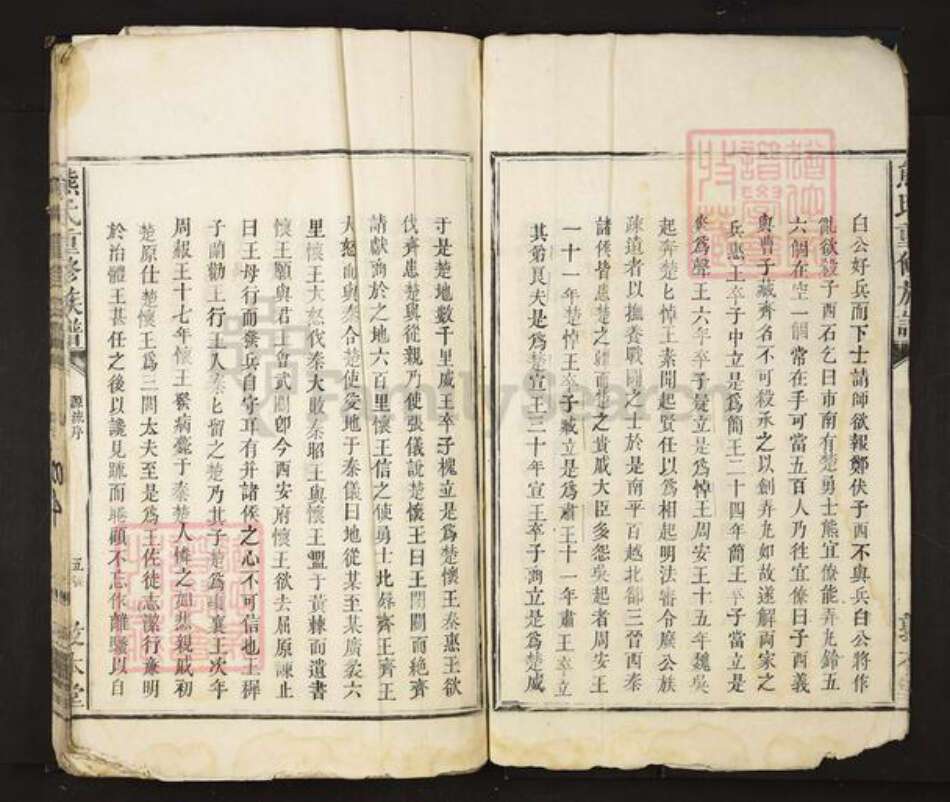 白公好兵而下士請師欲報鄭伏子西不與兵白公將作
亂欲殺子西石乞曰市南有楚勇士熊宜僚能弄九鈴五
六個在空一個常在手可當五百人乃徃宜僚曰子西義
與曹子臧齊名不可殺承之以劍弄九如故遂解兩家之
兵惠王卒子中立是爲簡王二十四年簡王卒子當立是
爲聲王六年卒子疑立是爲悼王周安王十五年魏吳
起奔楚悼王素聞起賢任以爲相起明法審令廢公族
疎遠者以撫養戰鬪之士於是南平百越北卻三晉西秦
諸侯皆患楚之疆而楚之貴戚大臣多怨吳起者周安王
二十一年楚悼王卒子臧立是爲肅王十一年肅王卒立
其弟良夫是爲楚宣王三十年宣王卒子商立是爲楚威
于是楚地數千里威王卒子槐立是爲楚懷王秦惠王欲
伐齊患楚與從親乃使張儀說楚懷王曰王閉關而絶齊
請獻商於之地六百里懷王信之使勇士北辱齊王齊王
大怒而與秦合楚使受地于秦儀曰地從某至某廣袤六
里懷王大怒伐秦大敗秦昭王與懷王盟于黃棘而遺書
懷王願與君王會武關卽今西安府懷王欲去屈原諫止
曰王母行而發兵自守耳有并諸侯之心不可信也王稺
子蘭勸王行王入秦秦留之楚乃其子楚爲頃襄王次年
周赧王十七年懷王髮病薨于秦楚人憐之如悲親戚初
楚原仕楚懷王爲三閭大夫至是爲王佐徒志潔行兼明
於治體王甚任之後以讒見疏而睠顧不忘作離騷以自
熊氏重修族譜
源流序
五
熊氏重修族譜